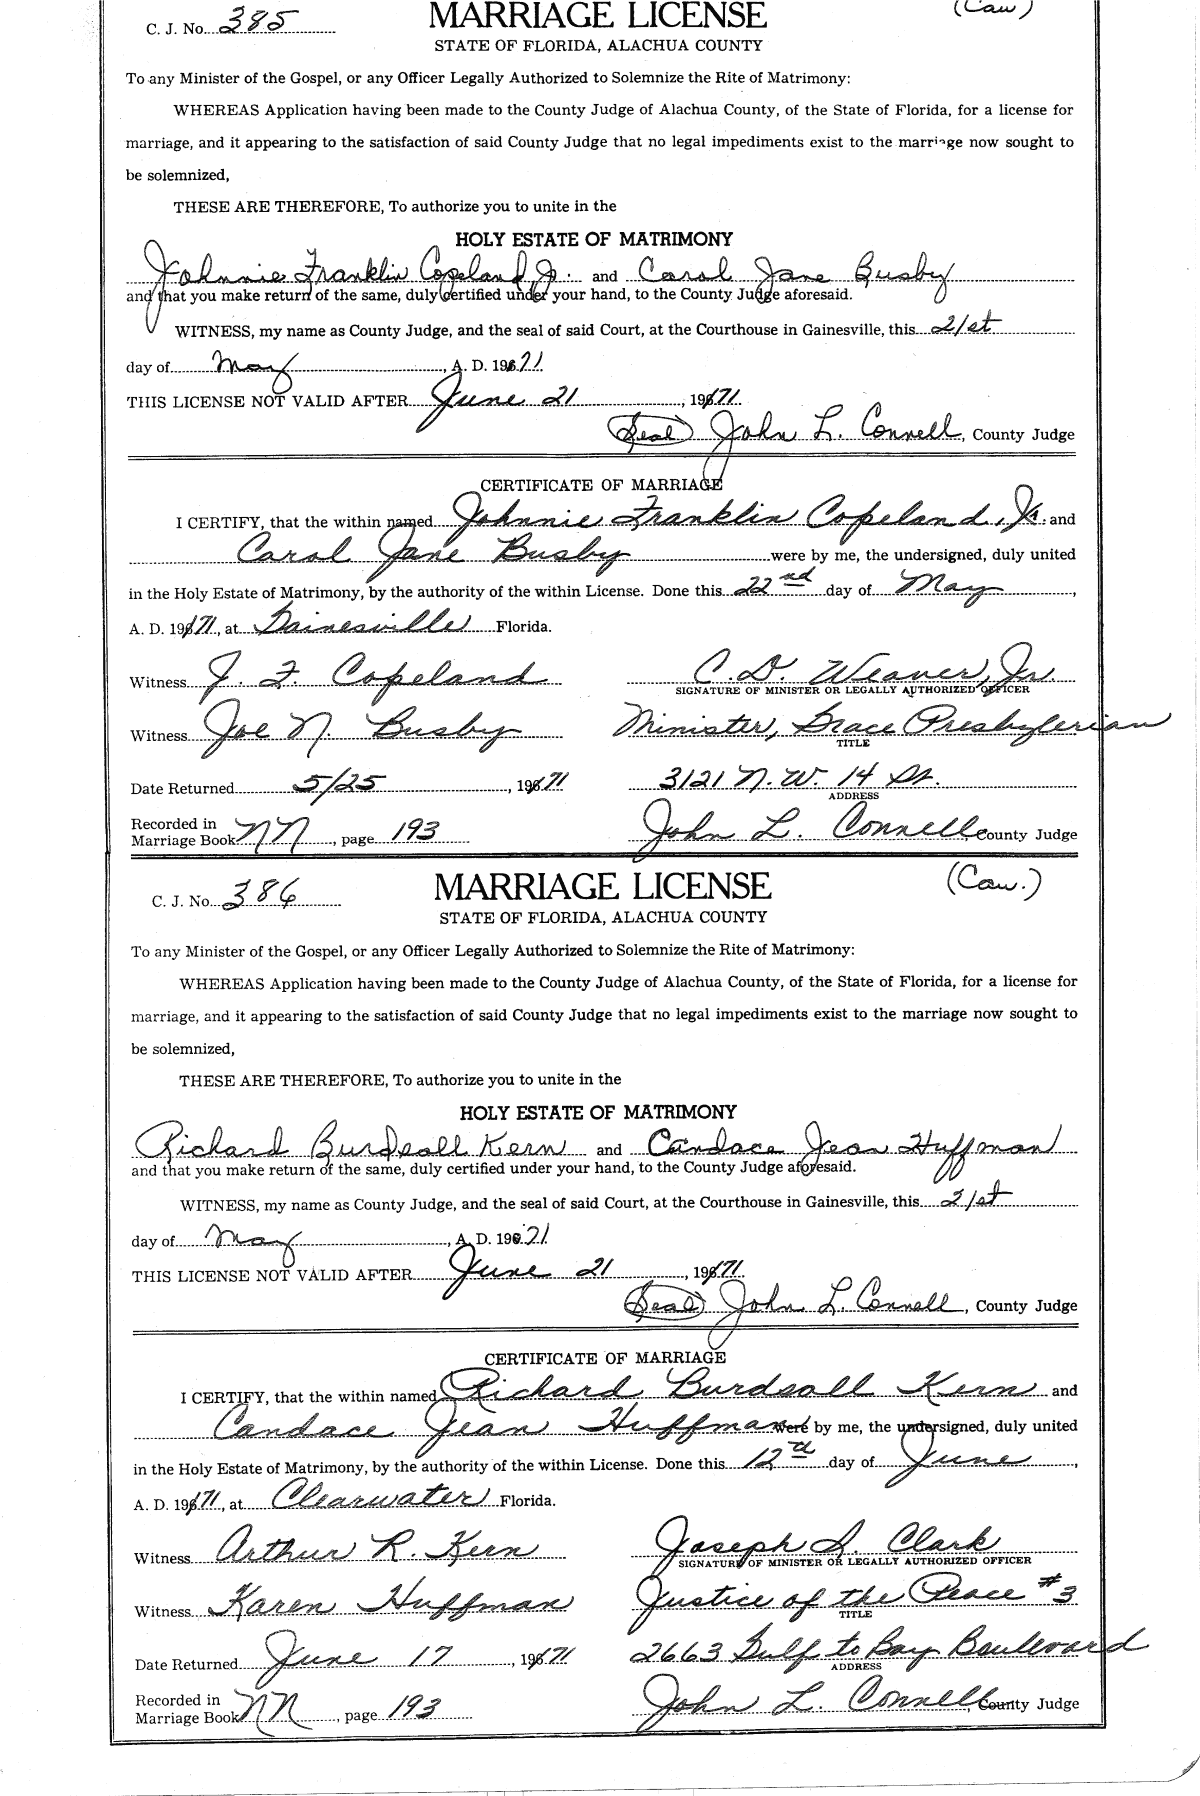 C. J. No. 385
MARRIAGE LICENSE
(Cau)
STATE OF FLORIDA, ALACHUA COUNTY
To any Minister of the Gospel, or any Officer Legally Authorized to Solemnize the Rite of Matrimony:
WHEREAS Application having been made to the County Judge of Alachua County, of the State of Florida, for a license for
marriage, and it appearing to the satisfaction of said County Judge that no legal impediments exist to the marriage now sought to
be solemnized,
THESE ARE THEREFORE, To authorize you to unite in the
HOLY ESTATE OF MATRIMONY
Johnnie Franklin Copeland, Jr. and Carol Jane Busby
and that you make return of the same, duly certified under your hand, to the County Judge aforesaid.
WITNESS, my name as County Judge, and the seal of said Court, at the Courthouse in Gainesville, this 21st
day of May, A. D. 1971
THIS LICENSE NOT VALID AFTER June 21, 1971
(Seal) John L. Connell, County Judge
CERTIFICATE OF MARRIAGE
I CERTIFY, that the within named Johnnie Franklin Copeland, Jr. and
Carol Jane Busby were by me, the undersigned, duly united
in the Holy Estate of Matrimony, by the authority of the within License. Done this 22nd day of May,
A. D. 1971, at Gainesville Florida.
Witness J. F. Copeland C. D. Weaver, Jr.
SIGNATURE OF MINISTER OR LEGALLY AUTHORIZED OFFICER
Witness Joe N. Busby Minister, Grace Presbyterian
TITLE
Date Returned 5/25, 1971 3121 N.W. 14 St.
ADDRESS
Recorded in
Marriage Book NN, page 193 John L. Connell County Judge
C. J. No. 386
MARRIAGE LICENSE
(Cau.)
STATE OF FLORIDA, ALACHUA COUNTY
To any Minister of the Gospel, or any Officer Legally Authorized to Solemnize the Rite of Matrimony:
WHEREAS Application having been made to the County Judge of Alachua County, of the State of Florida, for a license for
marriage, and it appearing to the satisfaction of said County Judge that no legal impediments exist to the marriage now sought to
be solemnized,
THESE ARE THEREFORE, To authorize you to unite in the
HOLY ESTATE OF MATRIMONY
Richard Burdsall Kern and Candace Jean Huffman
and that you make return of the same, duly certified under your hand, to the County Judge aforesaid.
WITNESS, my name as County Judge, and the seal of said Court, at the Courthouse in Gainesville, this 21st
day of May, A. D. 1971
THIS LICENSE NOT VALID AFTER June 21, 1971
(Seal) John L. Connell, County Judge
CERTIFICATE OF MARRIAGE
I CERTIFY, that the within named Richard Burdsall Kern and
Candace Jean Huffman were by me, the undersigned, duly united
in the Holy Estate of Matrimony, by the authority of the within License. Done this 12th day of June,
A. D. 1971, at Clearwater Florida.
Witness Arthur R. Kern Joseph S. Clark
SIGNATURE OF MINISTER OR LEGALLY AUTHORIZED OFFICER
Witness Karen Huffman Justice of the Peace #3
TITLE
Date Returned June 17, 1971 2663 Gulf to Bay Boulevard
ADDRESS
Recorded in
Marriage Book NN, page 193 John L. Connell, County Judge